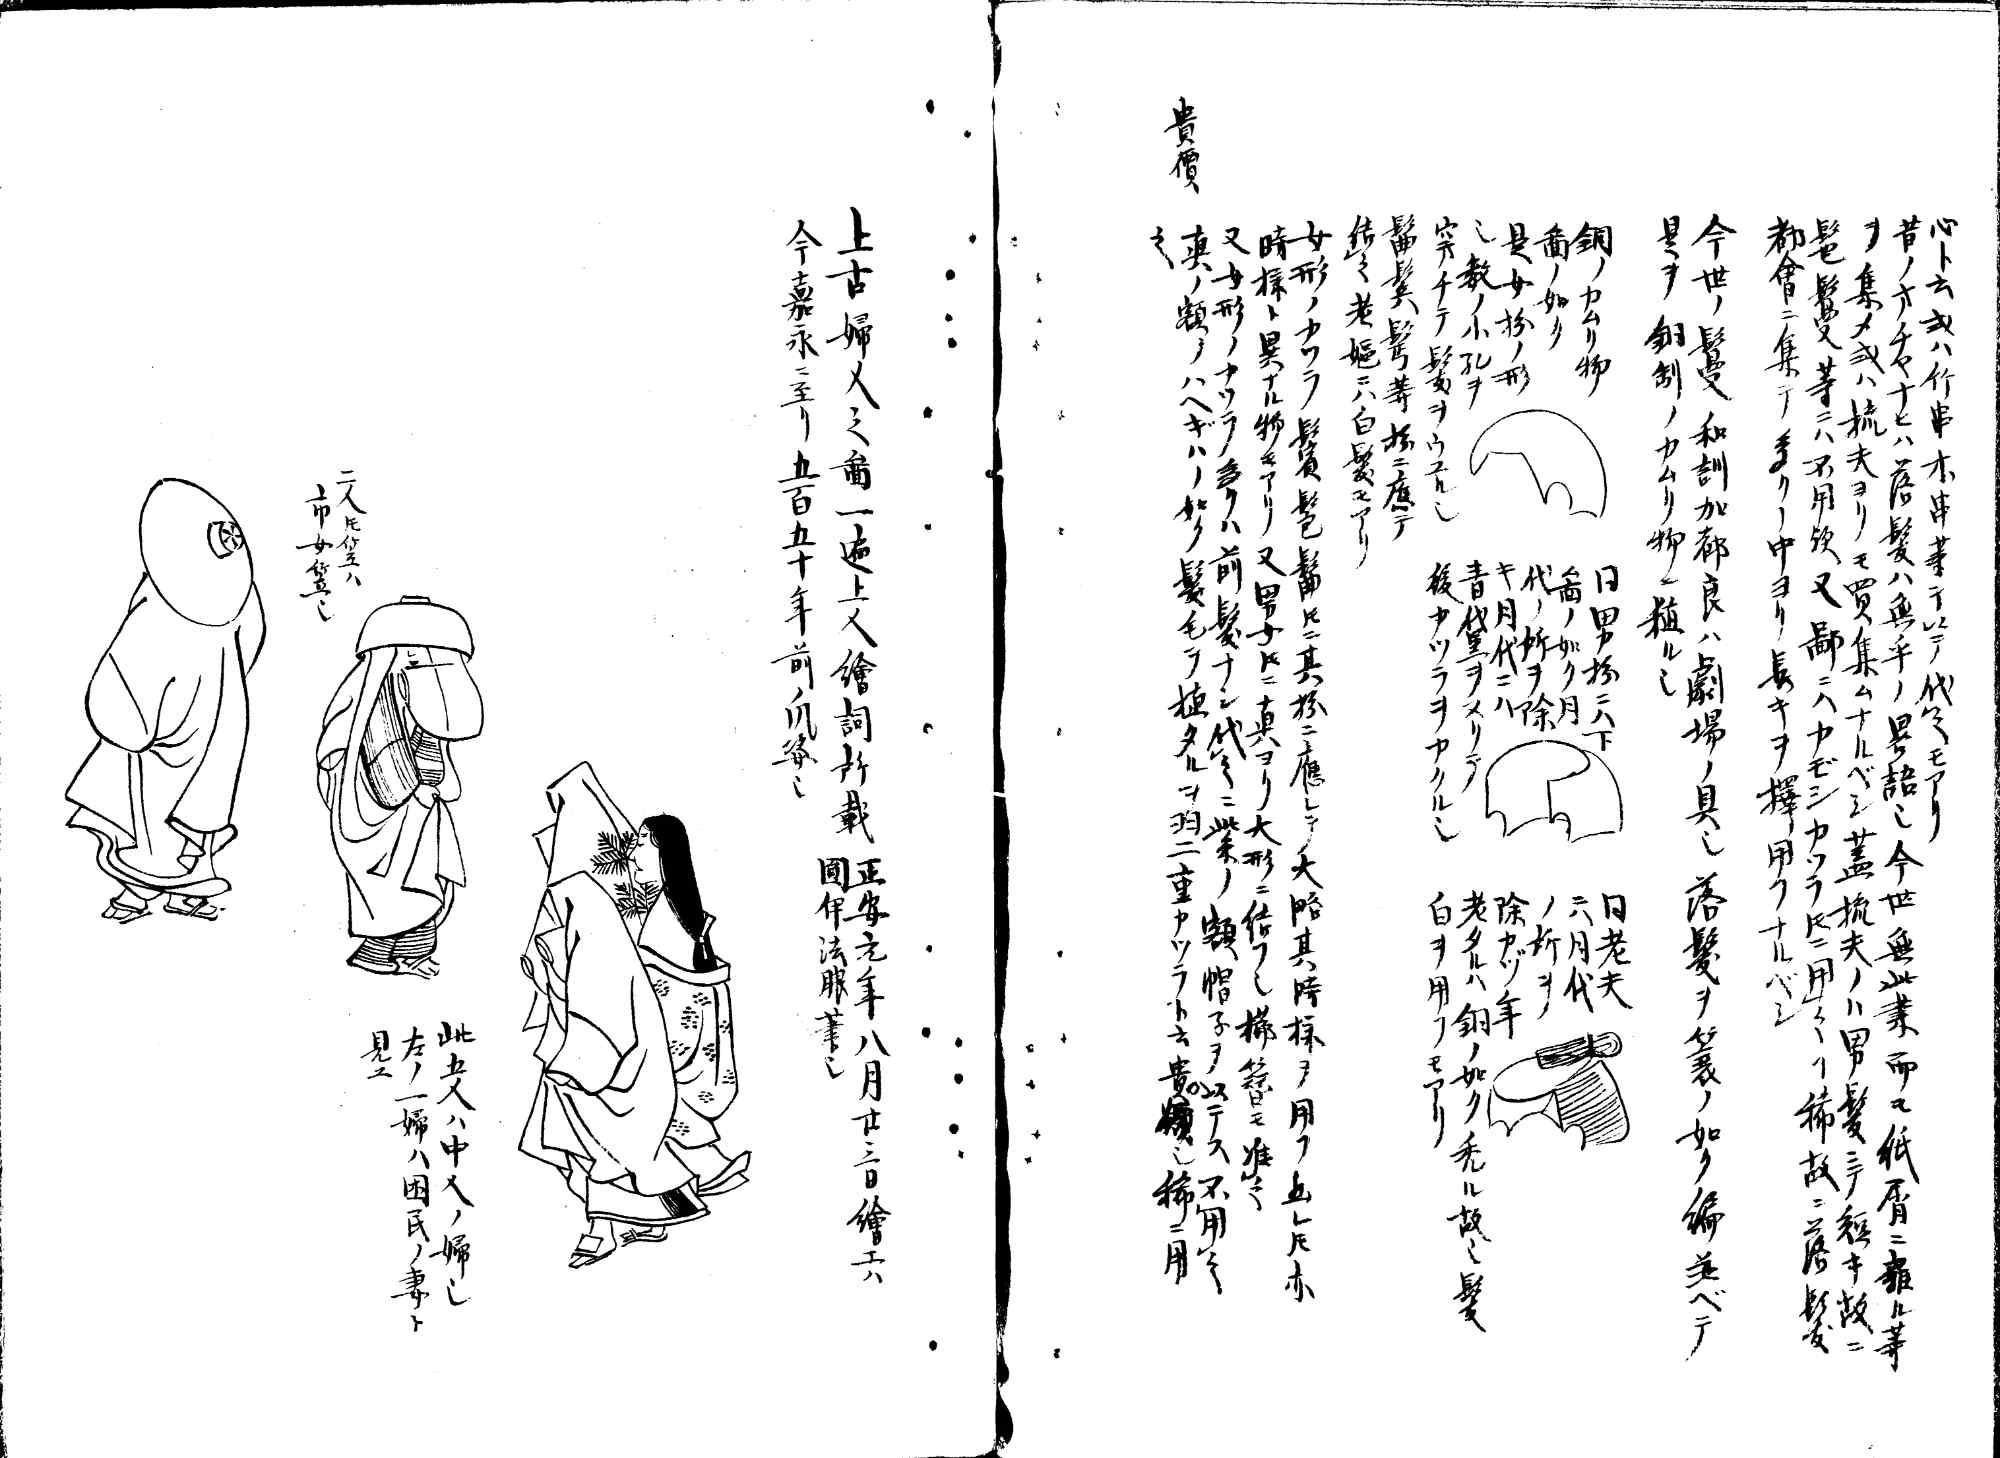 心ト云或ハ竹串木串等ヲ以テ代之モアリ
昔ノオチヤナヒハ落髪ハ無乎ノ畧語也今世無此業而モ紙屑ニ雜ル等
ヲ集メ或ハ梳夫ヨリモ買集ムナルベシ蓋梳夫ノハ男髪ニテ短キ故ニ
髱鬘等ニハ不用欤又鄙ニハカモジカツラ氏ニ用之コト稀故ニ落髪
都會ニ集テ多クノ中ヨリ長キヲ擇ヒ用フナルベシ
今世ノ鬘和訓加都良ハ劇場ノ具也落髪ヲ簑ノ如ク編並ベテ
是ヲ銅制ノカムリ物ニ植ル也
銅ノカムリ物
啚ノ如ク
是女扮ノ形
也数ノ小孔ヲ
穿チテ髪ヲウユル也
髷鬂髩等扮ニ應テ
結之老嫗ニハ白髪モアリ
同男扮ニハ下
啚ノ如ク月
代ノ所ヲ除
キ月代ニハ
青黛ヲヌリテ
後カツラヲカクル也
同老夫
ニハ月代
ノ所ヲ
除カズ年
老タルハ銅ノ如ク禿ル故也髪
白ヲ用フモアリ
女形ノカツラ鬂髱髷氏ニ其扮ニ應シテ大略其時様ヲ用フ且レ氏亦
時様ト異ナル物モアリ又男女氏ニ真ヨリ大形ニ結フ也櫛簪モ准之
又女形ノカツラノ多クハ前髪ナシ代之ニ紫ノ額帽子ヲ以テス不用之
真ノ額ノハヘギハノ如ク髪毛ヲ植タルヲ羽二重カツラト云貴價也稀ニ用
之
貴價
上古婦人之啚一遍上人繪詞所載
正安元年八月廿三日繪工ハ
圓伊法眼筆也
今嘉永ニ至リ五百五十年前ノ風姿也
二人氏笠ハ
市女笠也
此五人ハ中人ノ婦也
左ノ一婦ハ困民ノ妻ト
見エ